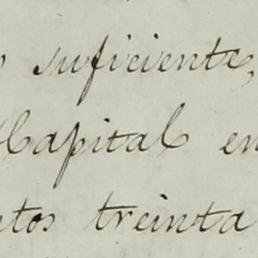 suficiente,
Capital en
etos treinta